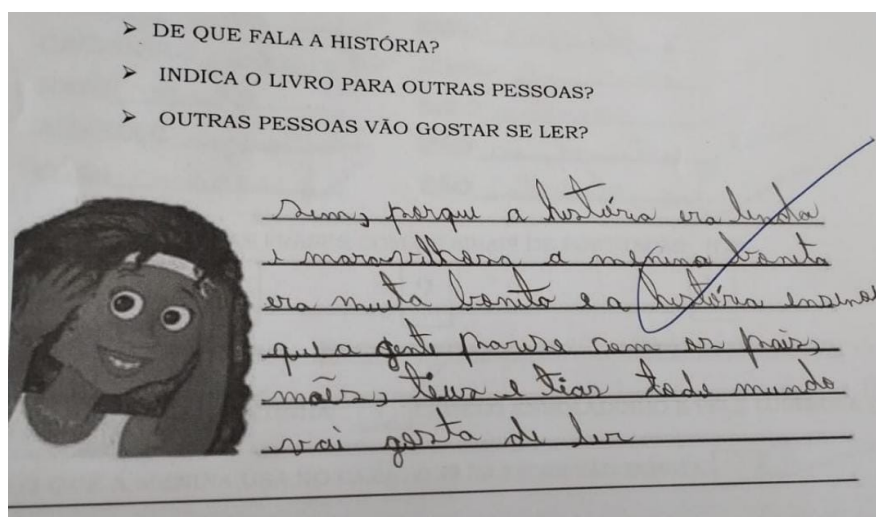 ➤ DE QUE FALA A HISTÓRIA?
➤ INDICA O LIVRO PARA OUTRAS PESSOAS?
➤ OUTRAS PESSOAS VÃO GOSTAR SE LER?
Sim, porque a história era linda
e maravilhosa a menina bonita
era muita bonita e a história ensinou
que a gente parese com os pais,
mães, tius e tias todo mundo
vai gosta de ler